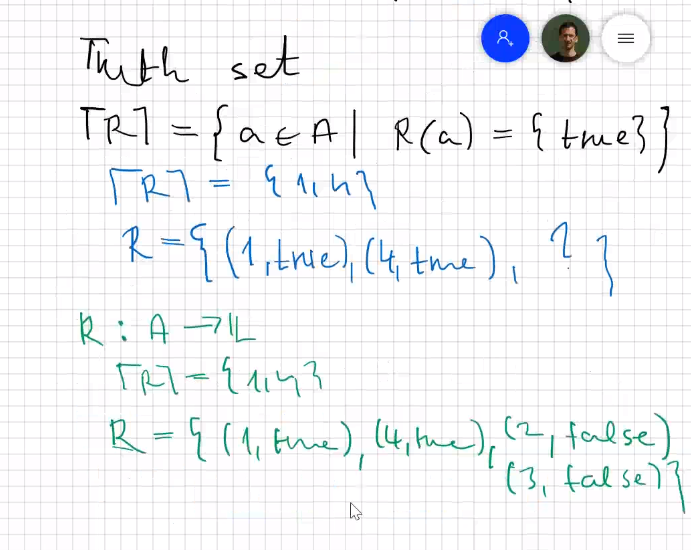 Truth set
⌈R⌉ = { a ∈ A | R(a) = { true } }
⌈R⌉ = { 1, 4 }
R = { (1, true), (4, true), ? }
R : A → 𝕃
⌈R⌉ = { 1, 4 }
R = { (1, true), (4, true), (2, false)
(3, false) }